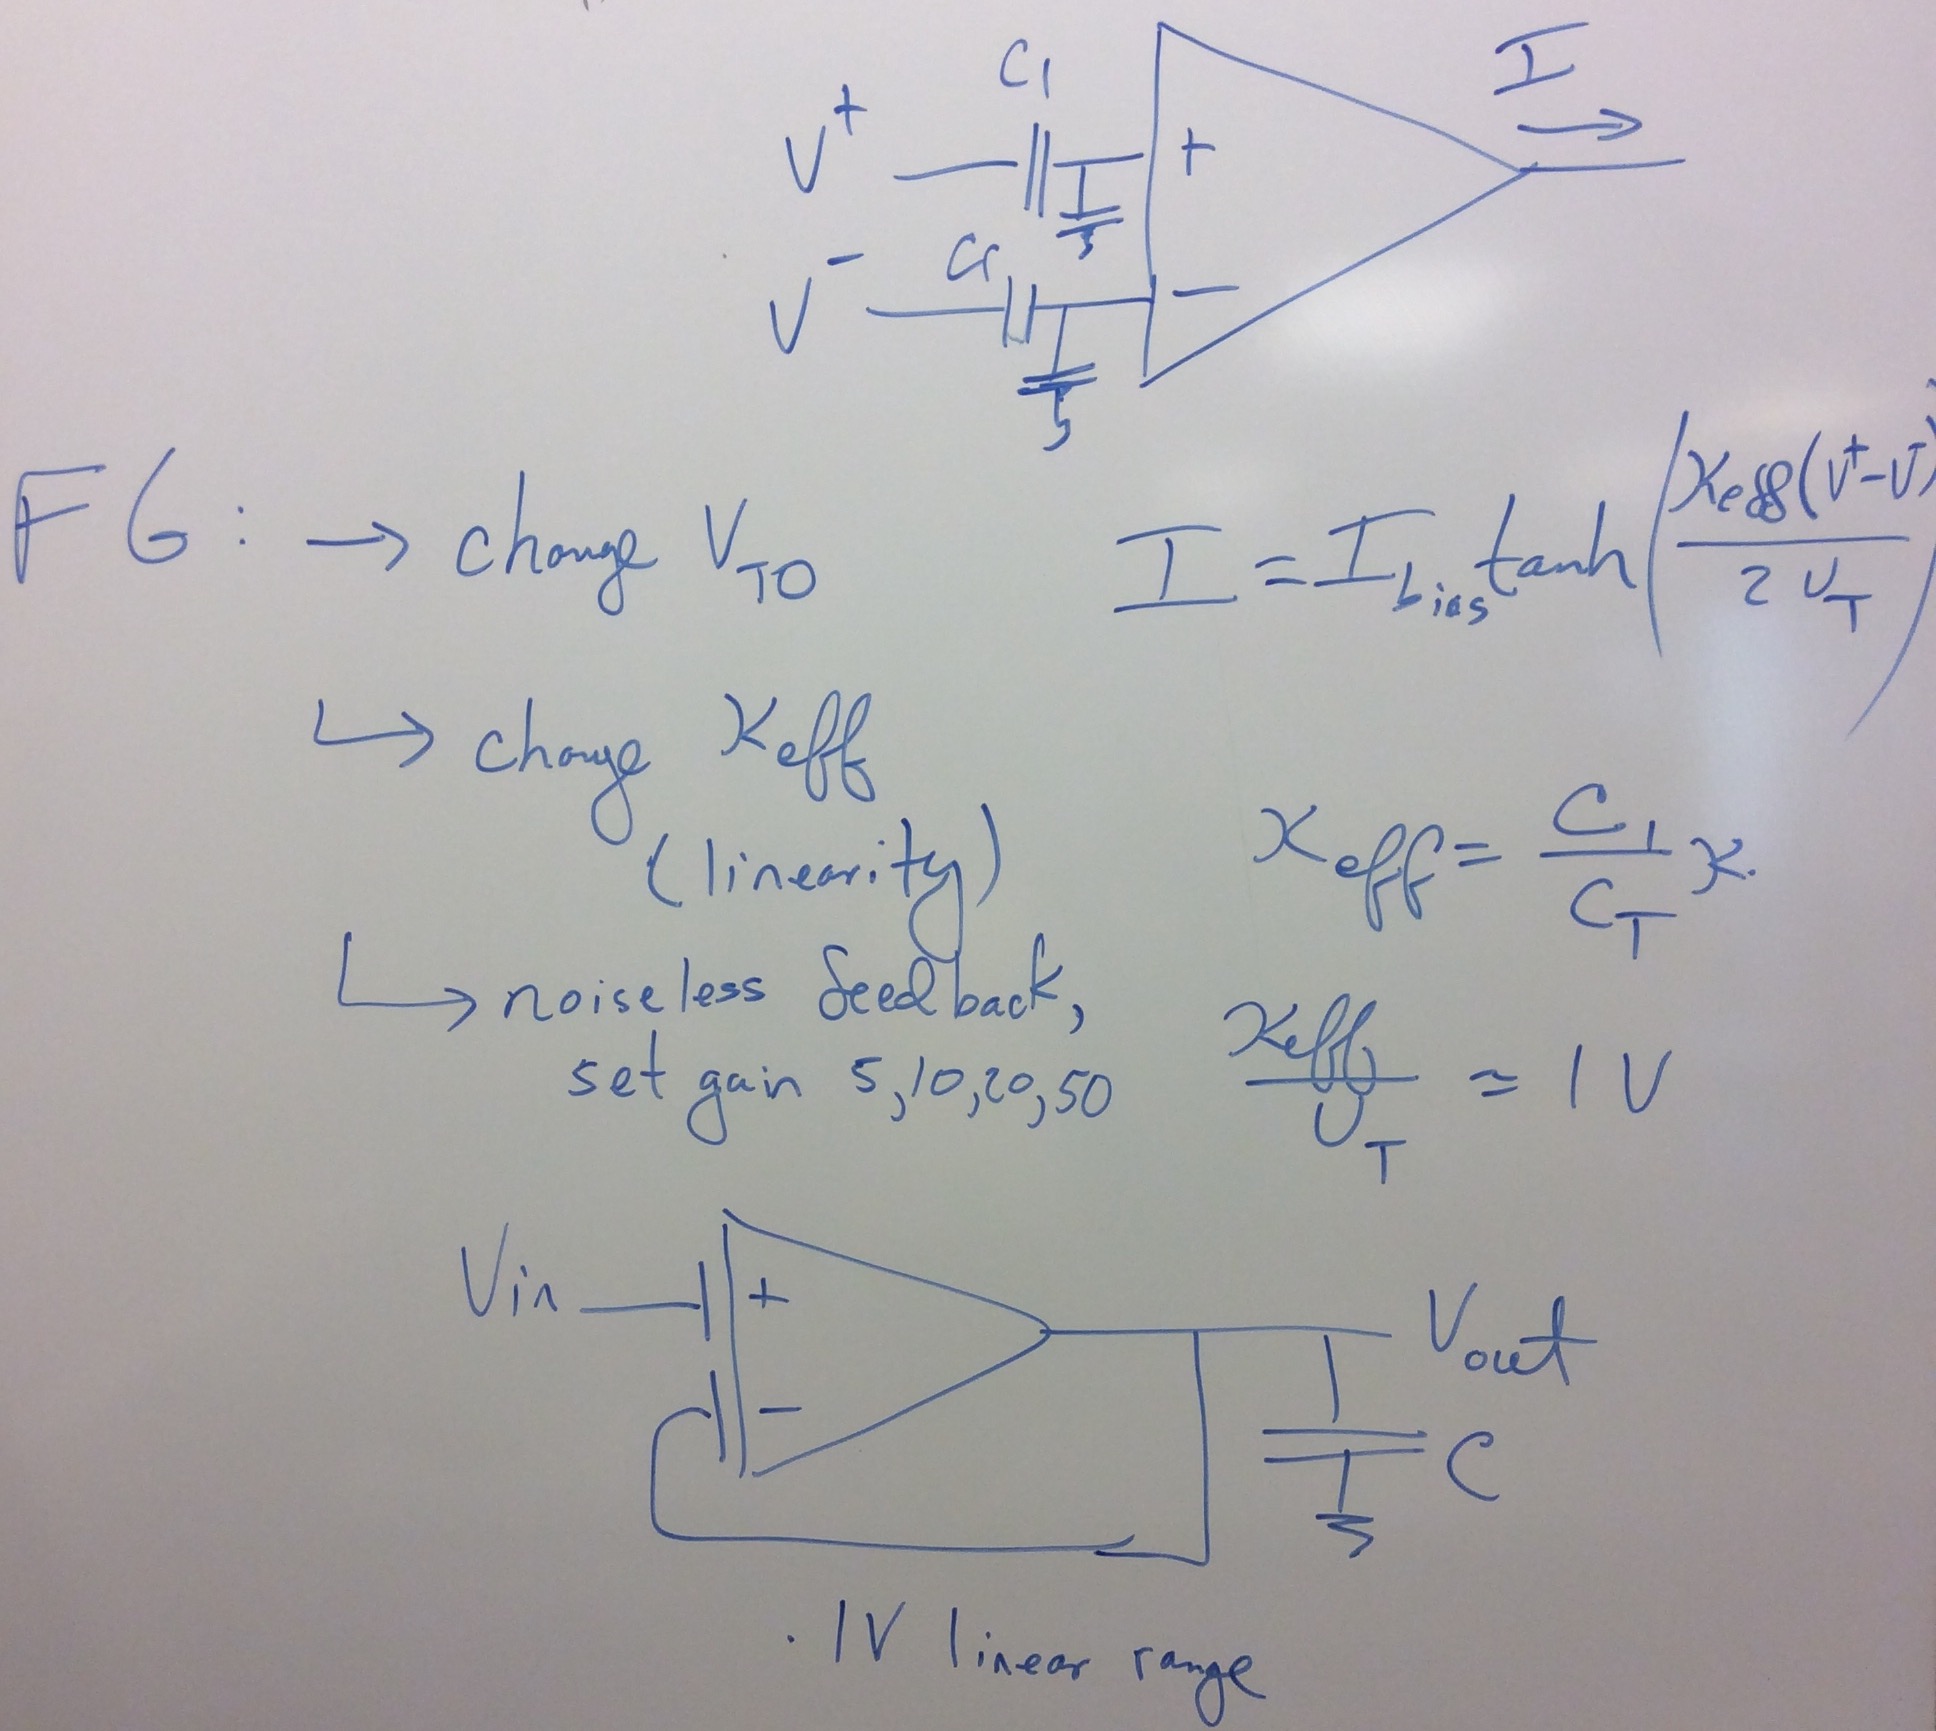 C1
I
V+
+
C1
V-
-
FG: → change VT0
I = Ibias tanh(κeff(V+-V-) / 2 UT)
↳ change κeff
(linearity)
κeff = C1/CT κ.
↳ noiseless feedback,
set gain 5,10,20,50
κeff/UT ≈ 1 V
Vin
+
-
Vout
C
. 1V linear range